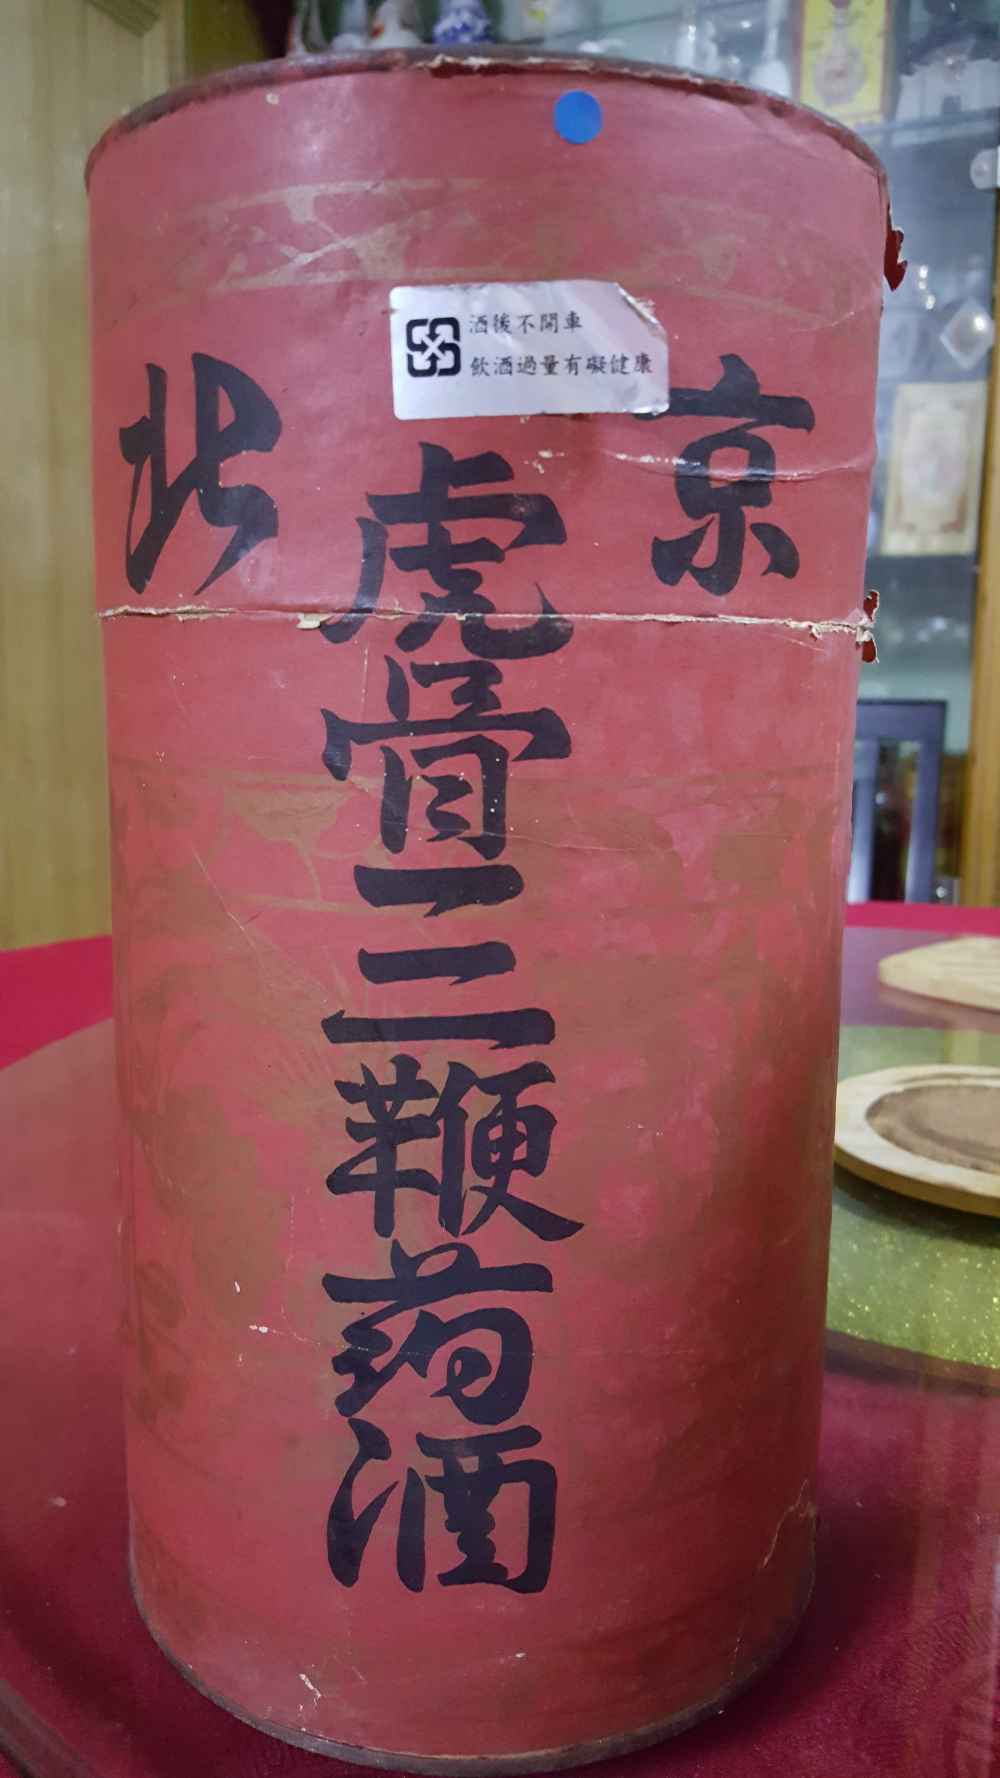 酒後不開車
飲酒過量有礙健康
北京
虎骨三鞭药酒